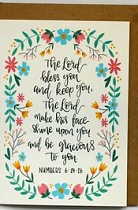 The Lord
bless you
and keep you,
The Lord
make his face
shine upon you
and be gracious
to you
NUMBERS 6:24-26